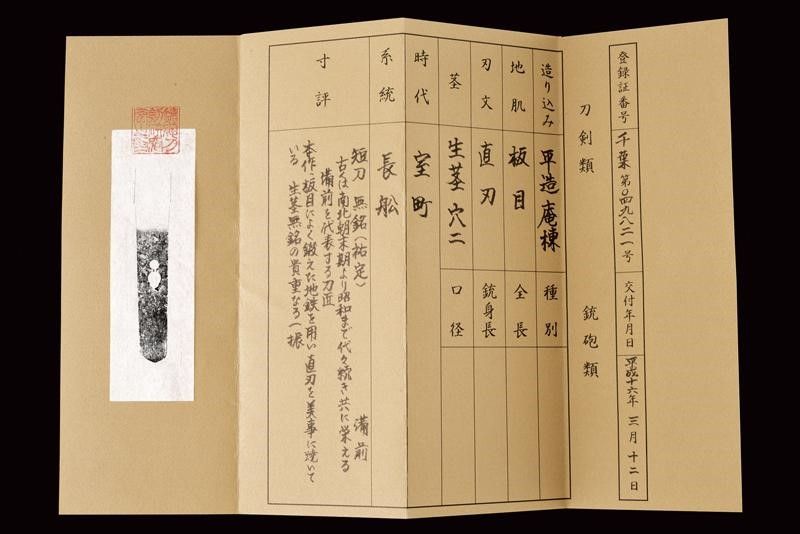 登録証番号 千葉 第〇四九八二一号 交付年月日 平成十六年 三月十二日
刀剣類 銃砲類
造り込み 平造庵棟 種別
地肌 板目 全長
刃文 直刃 銃身長
茎 生茎 穴二 口径
時代 室町
系統 長舩
寸評
短刀 無銘(祐定) 備前
古くは南北朝末期より昭和まで代々続き共に栄える
備前を代表する刀匠
本作、板目によく鍛えた地鉄を用い直刃を美事に焼いて
いる 生茎無銘の貴重なる一振